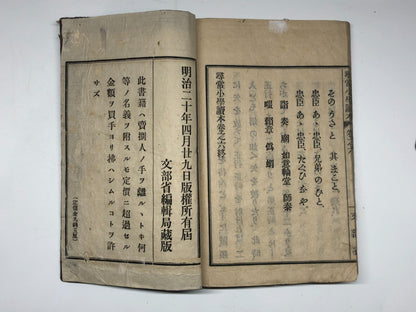 そのいさを 其まこと、
忠臣 あゝ忠臣、兄弟のひと、
忠臣 あゝ忠臣、たぐひなや、
詣 奏 廟 如意輪堂 師泰
鎧 為 蜩
尋常小學讀本卷之六終
明治二十年四月廿九日版權所有屆
文部省編輯局藏版
此書籍ハ賣捌人ノ手ヲ離ルヽトキ何
等ノ名義ヲ附スルモ定價ニ超過セル
金額ヲ買手ヨリ拂ハシムルコトヲ許
サズ